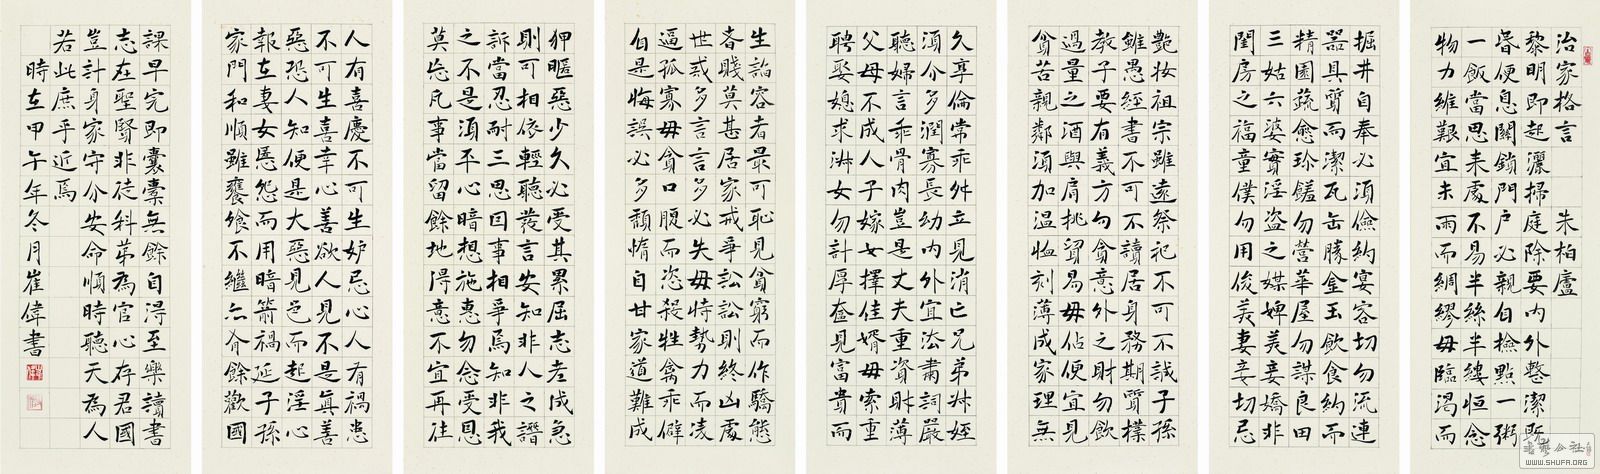 治家格言 朱柏廬
黎明即起灑掃庭除要內外整潔既
昏便息關鎖門戶必親自檢點一粥
一飯當思来處不易半絲半縷恒念
物力維艱宜未雨而綢繆毋臨渴而
掘井自奉必須儉約宴客切勿流連
器具質而潔瓦缶勝金玉飲食約而
精園蔬愈珍饈勿營華屋勿謀良田
三姑六婆實淫盜之媒婢美妾嬌非
閨房之福童僕勿用俊美妻妾切忌
艷妝祖宗雖遠祭祀不可不誠子孫
雖愚經書不可不讀居身務期質樸
教子要有義方勿貪意外之財勿飲
過量之酒與肩挑貿易毋佔便宜見
貧苦親鄰須加溫恤刻薄成家理無
久享倫常乖舛立見消亡兄弟叔姪
須分多潤寡長幼內外宜法肅詞嚴
聽婦言乖骨肉豈是丈夫重資財薄
父母不成人子嫁女擇佳婿毋索重
聘娶媳求淑女勿計厚奩見富貴而
生諂容者最可恥見貧窮而作驕態
者賤莫甚居家戒爭訟訟則終凶處
世戒多言言多必失毋恃勢力而凌
逼孤寡毋貪口腹而恣殺牲禽乖僻
自是悔誤必多頹惰自甘家道難成
狎暱惡少久必受其累屈志老成急
則可相依輕聽發言安知非人之譖
訴當忍耐三思因事相爭焉知非我
之不是須平心暗想施惠勿念受恩
莫忘凡事當留餘地得意不宜再往
人有喜慶不可生妒忌心人有禍患
不可生喜幸心善欲人見不是真善
惡恐人知便是大惡見色而起淫心
報在妻女匿怨而用暗箭禍延子孫
家門和順雖饔飧不繼亦有餘歡國
課早完即囊橐無餘自得至樂讀書
志在聖賢非徒科第為官心存君國
豈計身家守分安命順時聽天為人
若此庶乎近焉
時在甲午年冬月崔偉書
WWW.SHUFA.ORG